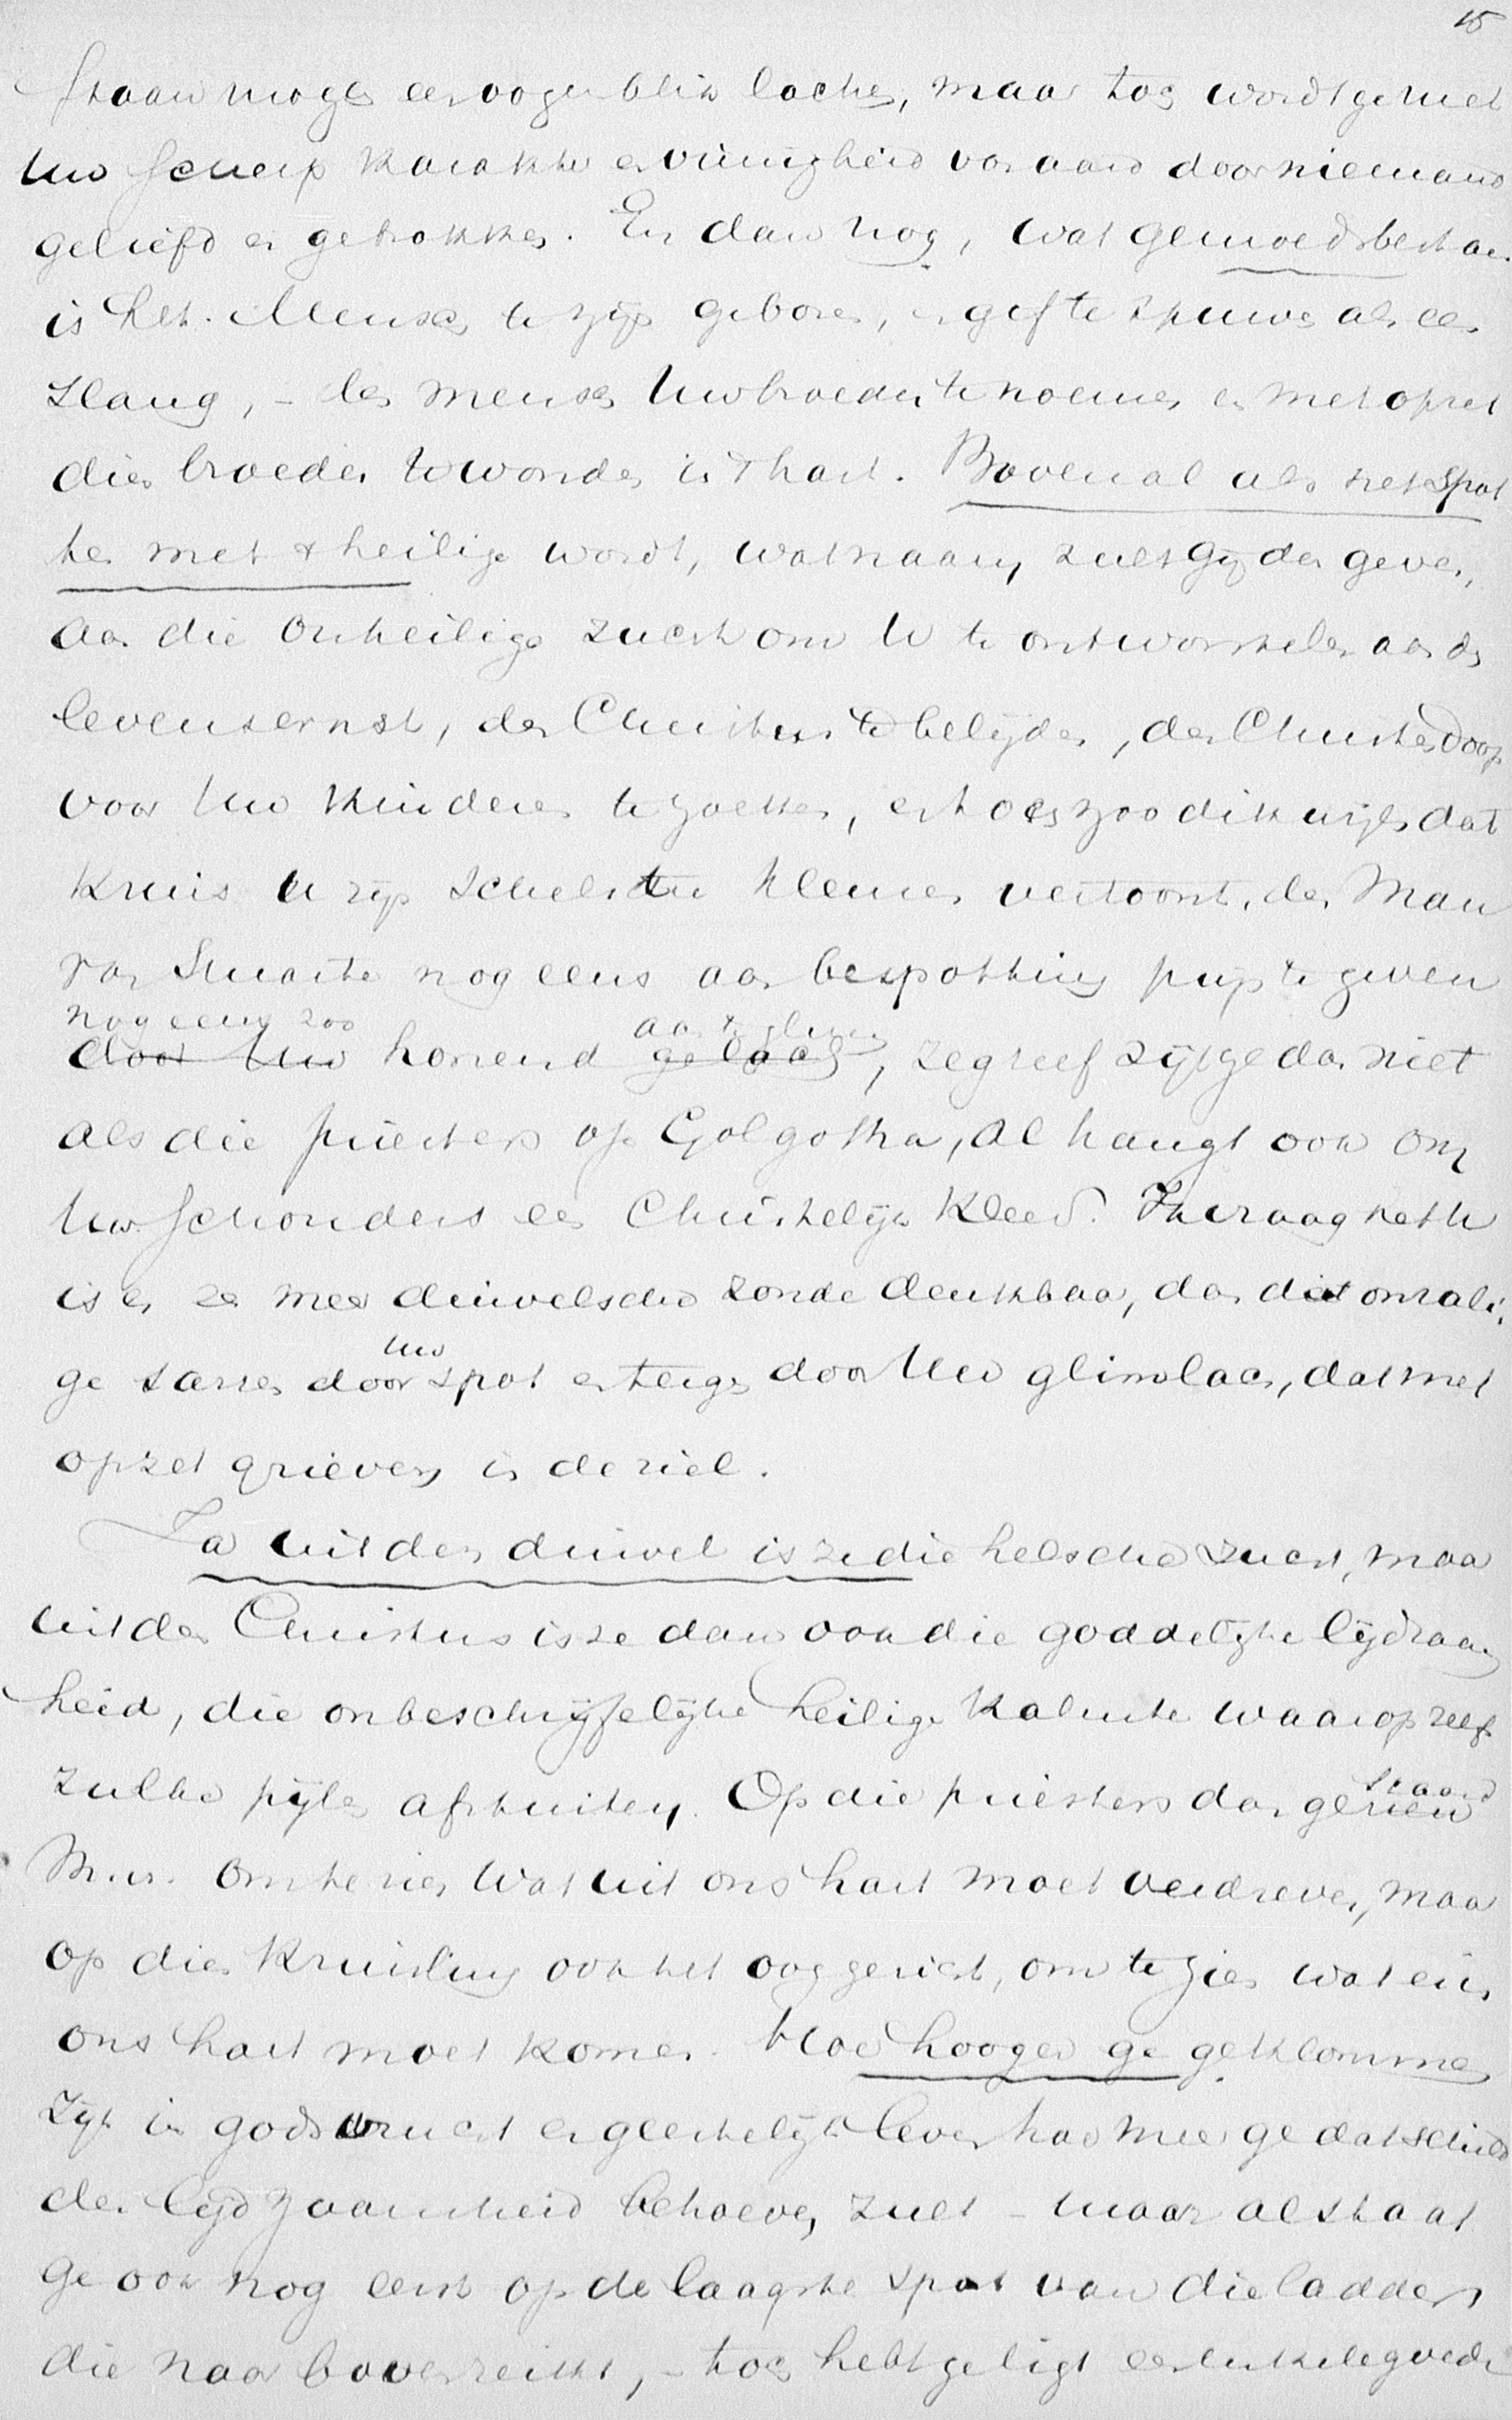 15
staan mogen een oogenblik lachen, maar toch wordt ge met
Uw scherp karakter en vinnigheid van aard door niemand
geliefd en getrokken. En dan nog, wat gemoedsbestaan
is het. Mensch te zijn geboren, en gif te spuwen als een
slang, - den mensch Uw broeder te noemen en met opzet
dien broeder te wonden in 't hart. Bovenal als het spot
ten met 't heilige wordt, wat naam, zult Gij dan geven,
aan die onheilige zucht om U te ontworstelen aan den
levensernst, den Christus te belijden, den Christendoop
voor Uw kinderen te zoeken, en toch zoo dikwijls dat
kruis U zijn schelste kleuren vertoont, den Man
van Smarte nog eens aan bespotting prijs te geven
nog eens zoo aan te gluren
door Uw honend gelach, zegt zelf zijt ge dan niet
als die priesters op Golgotha, al hangt ook om
Uw schouders een Christelijk kleed. Ik vraag het U
is er een meer duivelsche zonde denkbaar, dan dat onzali,
Uw
ge sarren door spot en tergen door Uw glimlach, dat met
opzet grieven in de ziel.
Ja uit den duivel is ze die helsche zucht, maar
uit den Christus is ze dan ook die goddelijke lijdzaam
heid, die onbeschrijfelijke heilige kalmte waarop zelf
zulke pijlen afstuiten. Op die priesters dan
staard
M.v. om te zien wat uit ons hart moet verdreven, maar
op dien kruisling ook het oog gericht, om te zien wat in
ons hart moet komen. Hoe hooger ge geklommen
zijt in godsvrucht en geestelijk leven hoe meer ge dat schild
der lijdzaamheid behoeven zult - maar al staat
ge ook nog eerst op de laagste sport van die ladder
die naar boven reikt, - toch hebt ge ligt een enkele goede